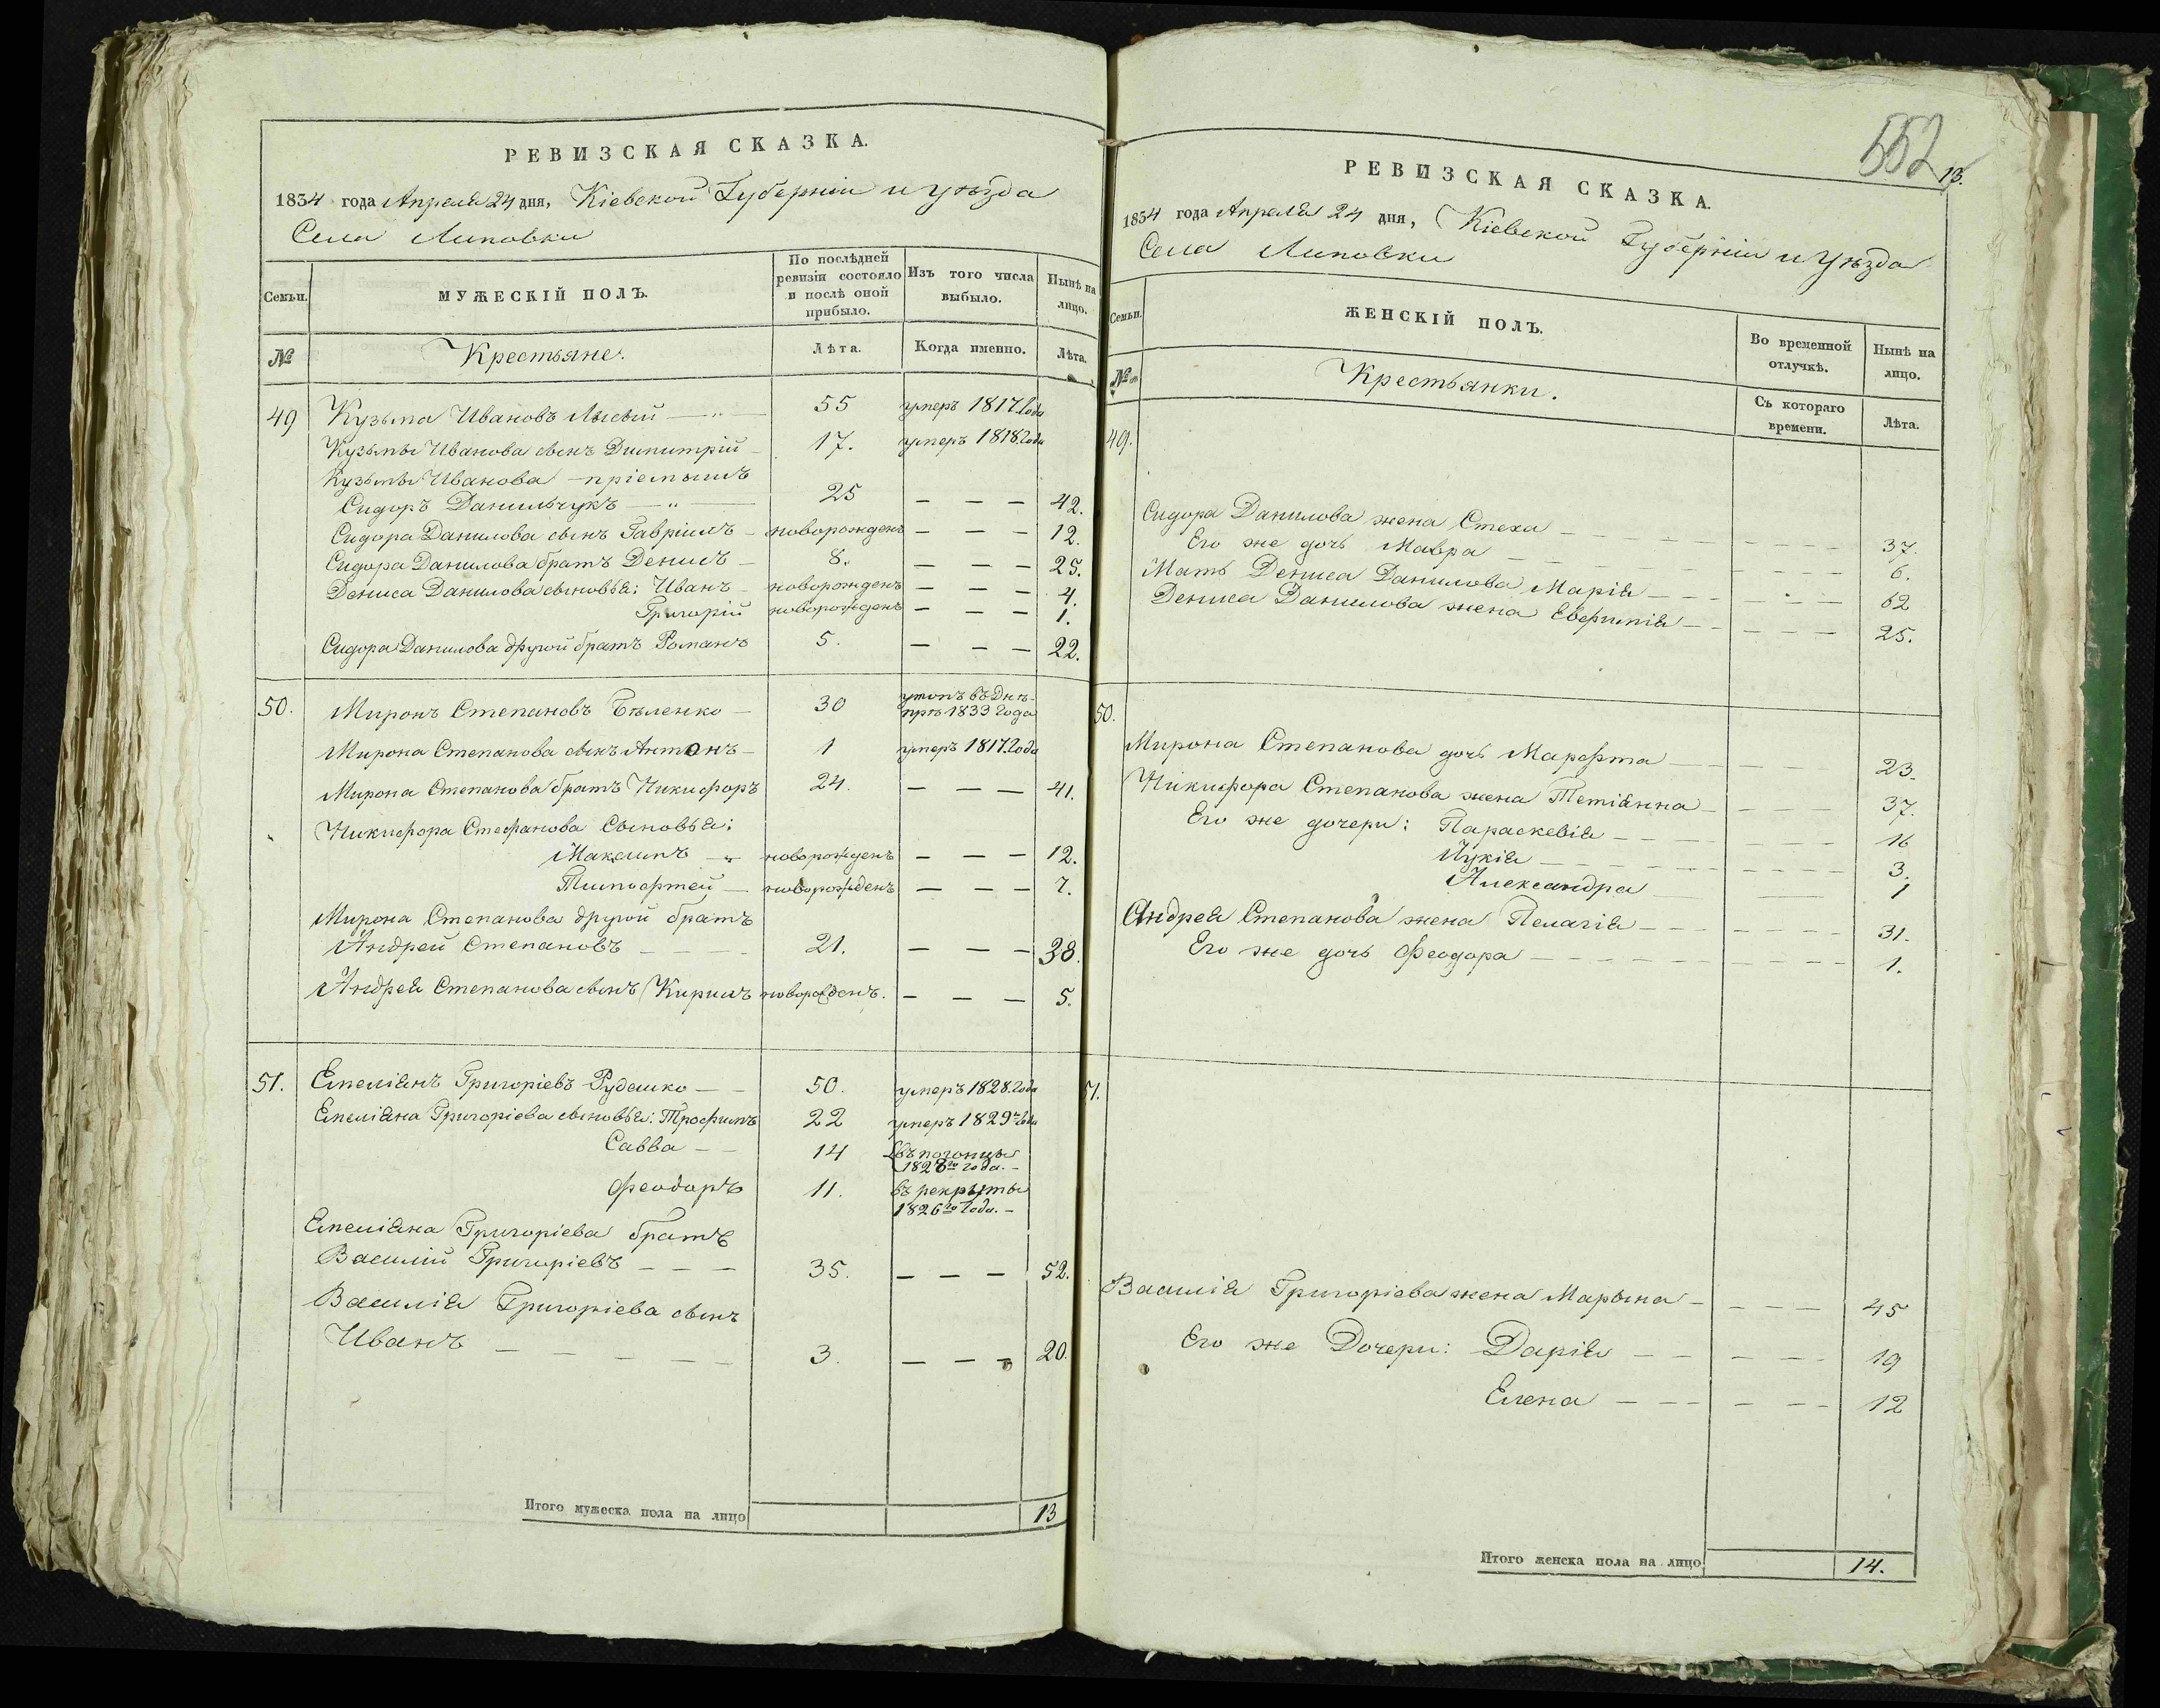 РЕВИЗСКАЯ СКАЗКА.
1834 года Апреля 24 дня, Кіевской Губерніи и уѣзда
Села Липовки
Семьи.
МУЖЕСКІЙ ПОЛЪ.
По послѣдней
ревизіи состояло
и послѣ оной
прибыло.
Изъ того числа
выбыло.
Нынѣ на
лицо.
№
Крестьяне.
Лѣта.
Когда именно.
Лѣта.
49 Кузьма Ивановъ Лысый — „ — 55 умеръ 1817. Года
Кузьмы Иванова сынъ Димитрій — 17. умеръ 1818 Года
Кузьмы Иванова — пріемышъ
Сидоръ Данильчукъ — „ — 25 — — — 42.
Сидора Данилова сынъ Гавріилъ — новорожденъ — — — 12.
Сидора Данилова братъ Денисъ — 8. — — — 25.
Дениса Данилова сыновья: Иванъ — новорожденъ — — — 4.
Григорій новорожденъ — — — 1.
Сидора Данилова другой братъ Романъ 5. — — — 22.
50. Миронъ Степановъ Бѣленко — 30 утопъ въ Днѣ-
прѣ 1833 Года
Мирона Степанова сынъ Антонъ — 1 умеръ 1817. Года
Мирона Степанова братъ Никифоръ 24. — — — 41.
Никифора Стефанова Сыновья:
Максимъ — „ новорожденъ — — — 12.
Тимофтей — новорожденъ — — — 7.
Мирона Степанова другой братъ
Андрей Степановъ — — — — 21. — — — 38.
Андрея Степанова сынъ Кирилъ новорожденъ. — — — 5.
51. Емеліянъ Григоріевъ Рудешко — — 50. умеръ 1828. Года
Емеліяна Григоріева сыновья: Трофимъ 22 умеръ 1829го Года
Савва — — 14 въ погонцы
1828го года. —
Феодоръ 11. въ рекруты
1826го Года. —
Емеліяна Григоріева братъ
Василій Григоріевъ — — — 35. — — — 52.
Василія Григоріева сынъ
Иванъ — — — — — 3. — — — 20.
Итого мужеска пола на лицо 13
552
13.
РЕВИЗСКАЯ СКАЗКА.
1834 года Апреля 24 дня, Кіевской Губерніи и Уѣзда
Села Липовки
Семьи.
ЖЕНСКІЙ ПОЛЪ.
Во временной
отлучкѣ.
Нынѣ на
лицо.
№
Крестьянки.
Съ котораго
времени.
Лѣта.
49.
Сидора Данилова жена Стеха — — — — — — 37.
Его же дочь Мавра — — — — — — 6.
Мать Дениса Данилова Марія — — — — — — 62
Дениса Данилова жена Евфимія — — — — — 25.
50.
Мирона Степанова дочь Марфта — — — — 23.
Никифора Степанова жена Тетіянна — — — — 37.
Его же дочери: Параскевія — — — — — 16
Лукія — — — — — — 3.
Александра — — — 1
Андрея Степанова жена Пелагія — — — — — — 31.
Его же дочь Феодора — — — — — — 1.
51.
Василія Григоріева жена Марына — — — — 45
Его же Дочери: Дарія — — — — — 19
Елена — — — — — — 12
Итого женска пола на лицо 14.